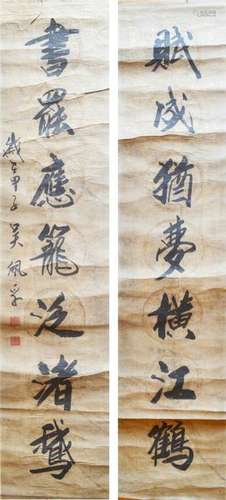 賦成猶夢橫江鶴
書罷應籠泛渚鵝
歲在甲子吳佩孚